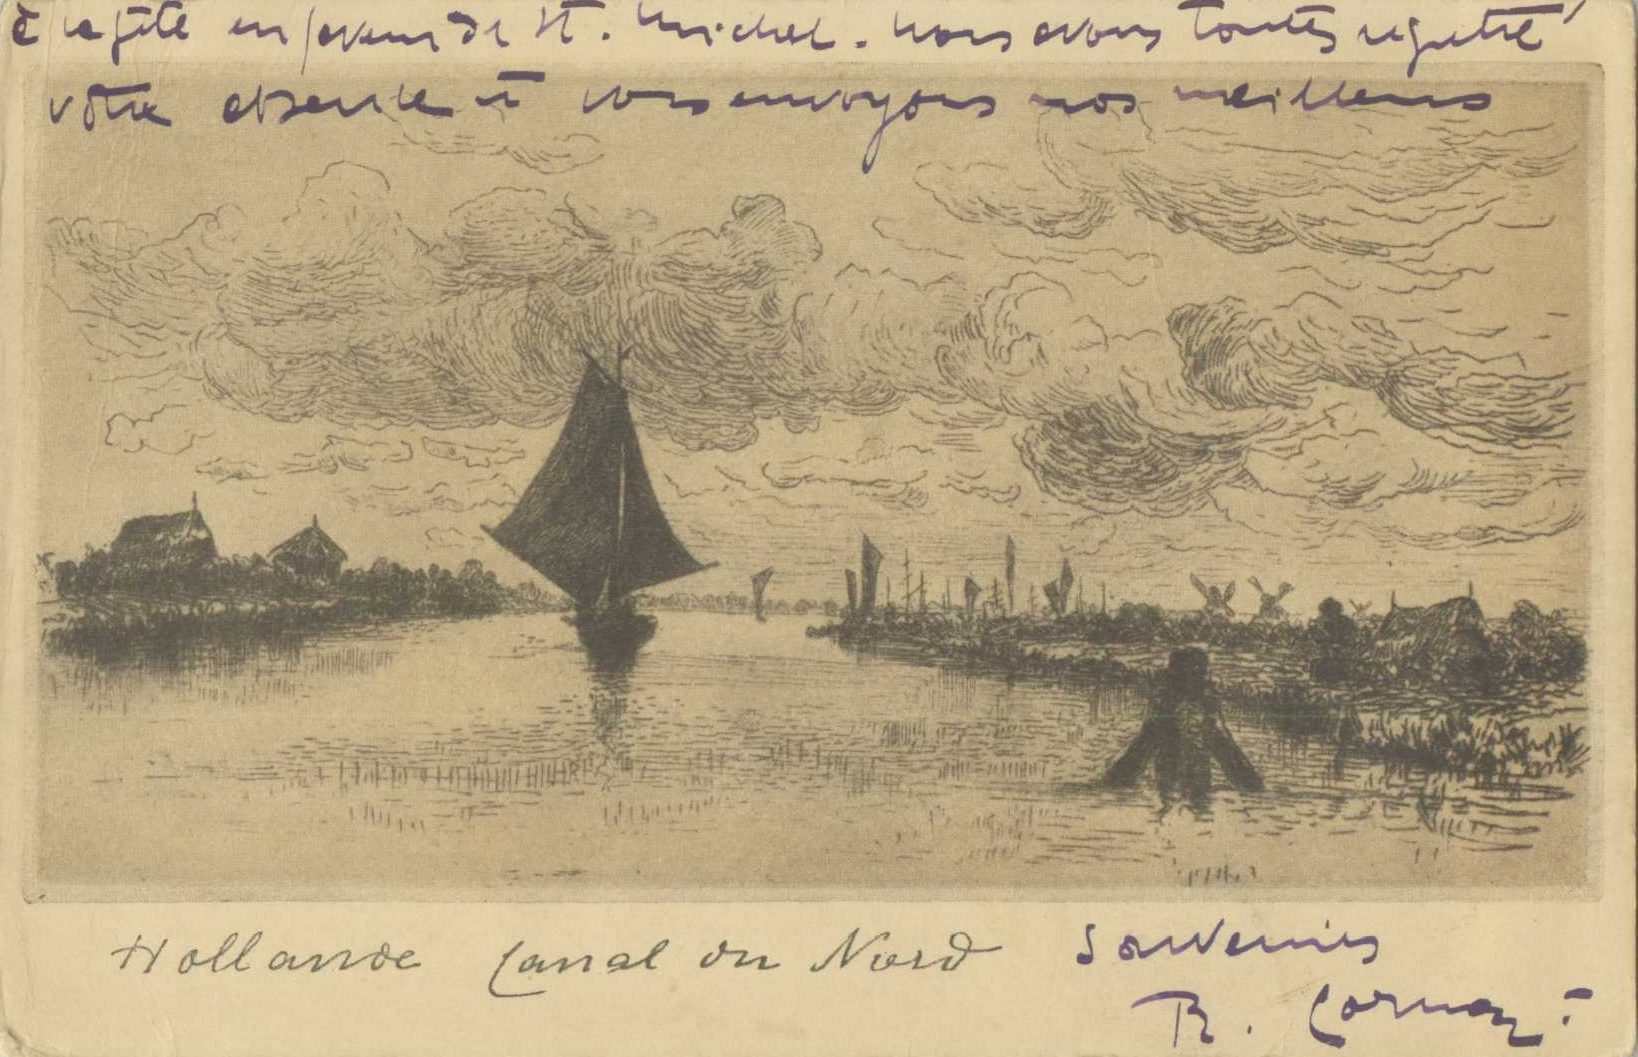 à la fête en faveur de St. Michel. nous avons toutes regretté
votre absence et vous envoyons nos meilleurs
Hollande Canal du Nord
souvenirs
R.